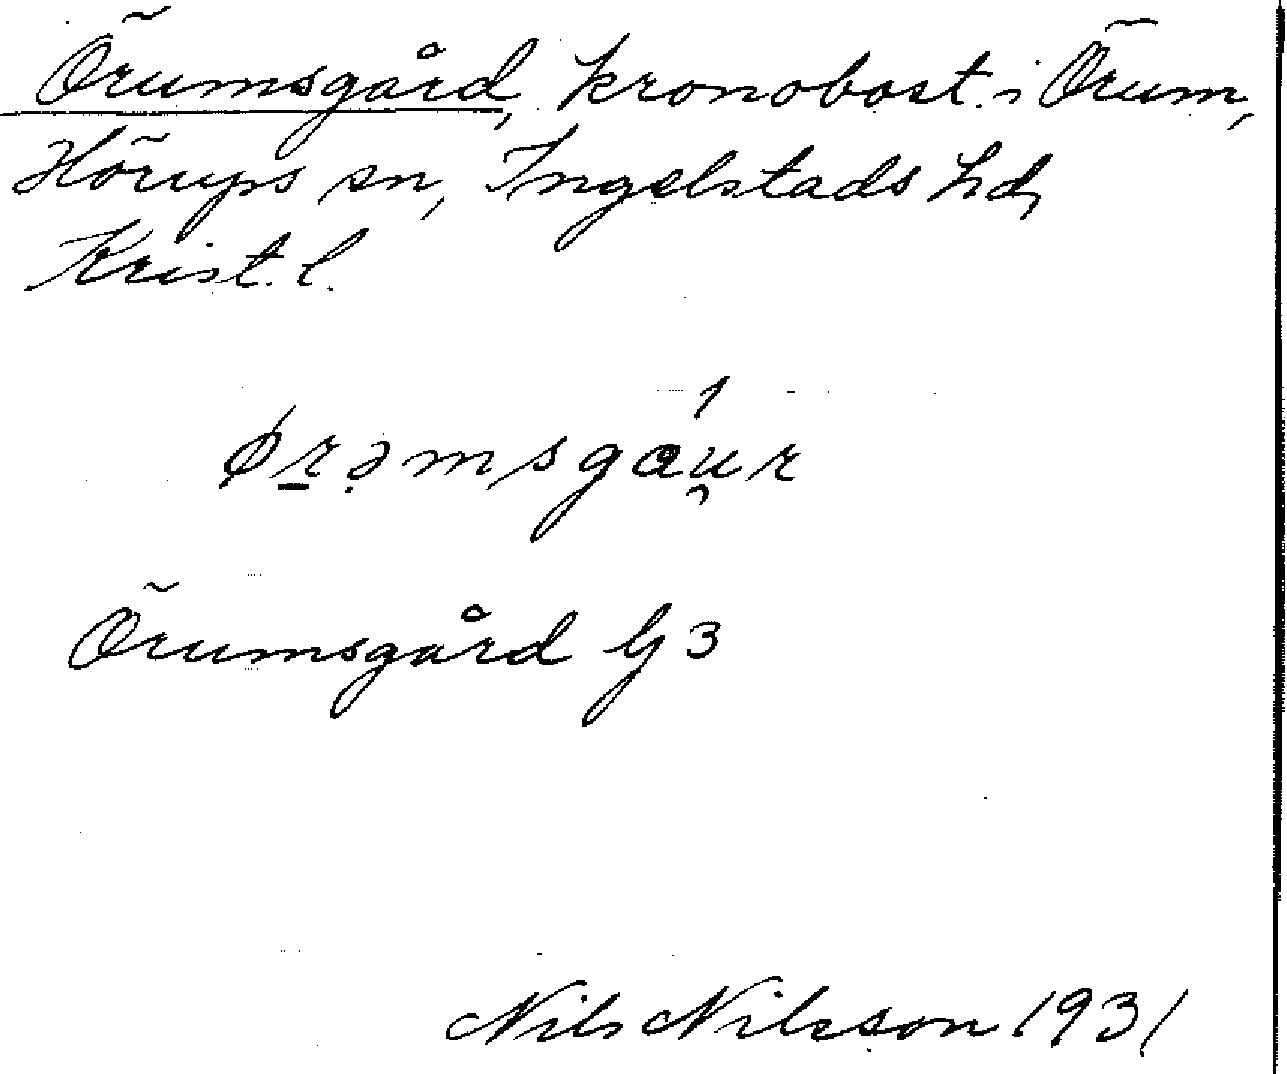 Örumsgård, kronobost. i Örum,
Hörups sn, Ingelstads hd,
Krist. l.
ørəmsgáu̯r
Örumsgård G 3
Nils Nilsson 1931